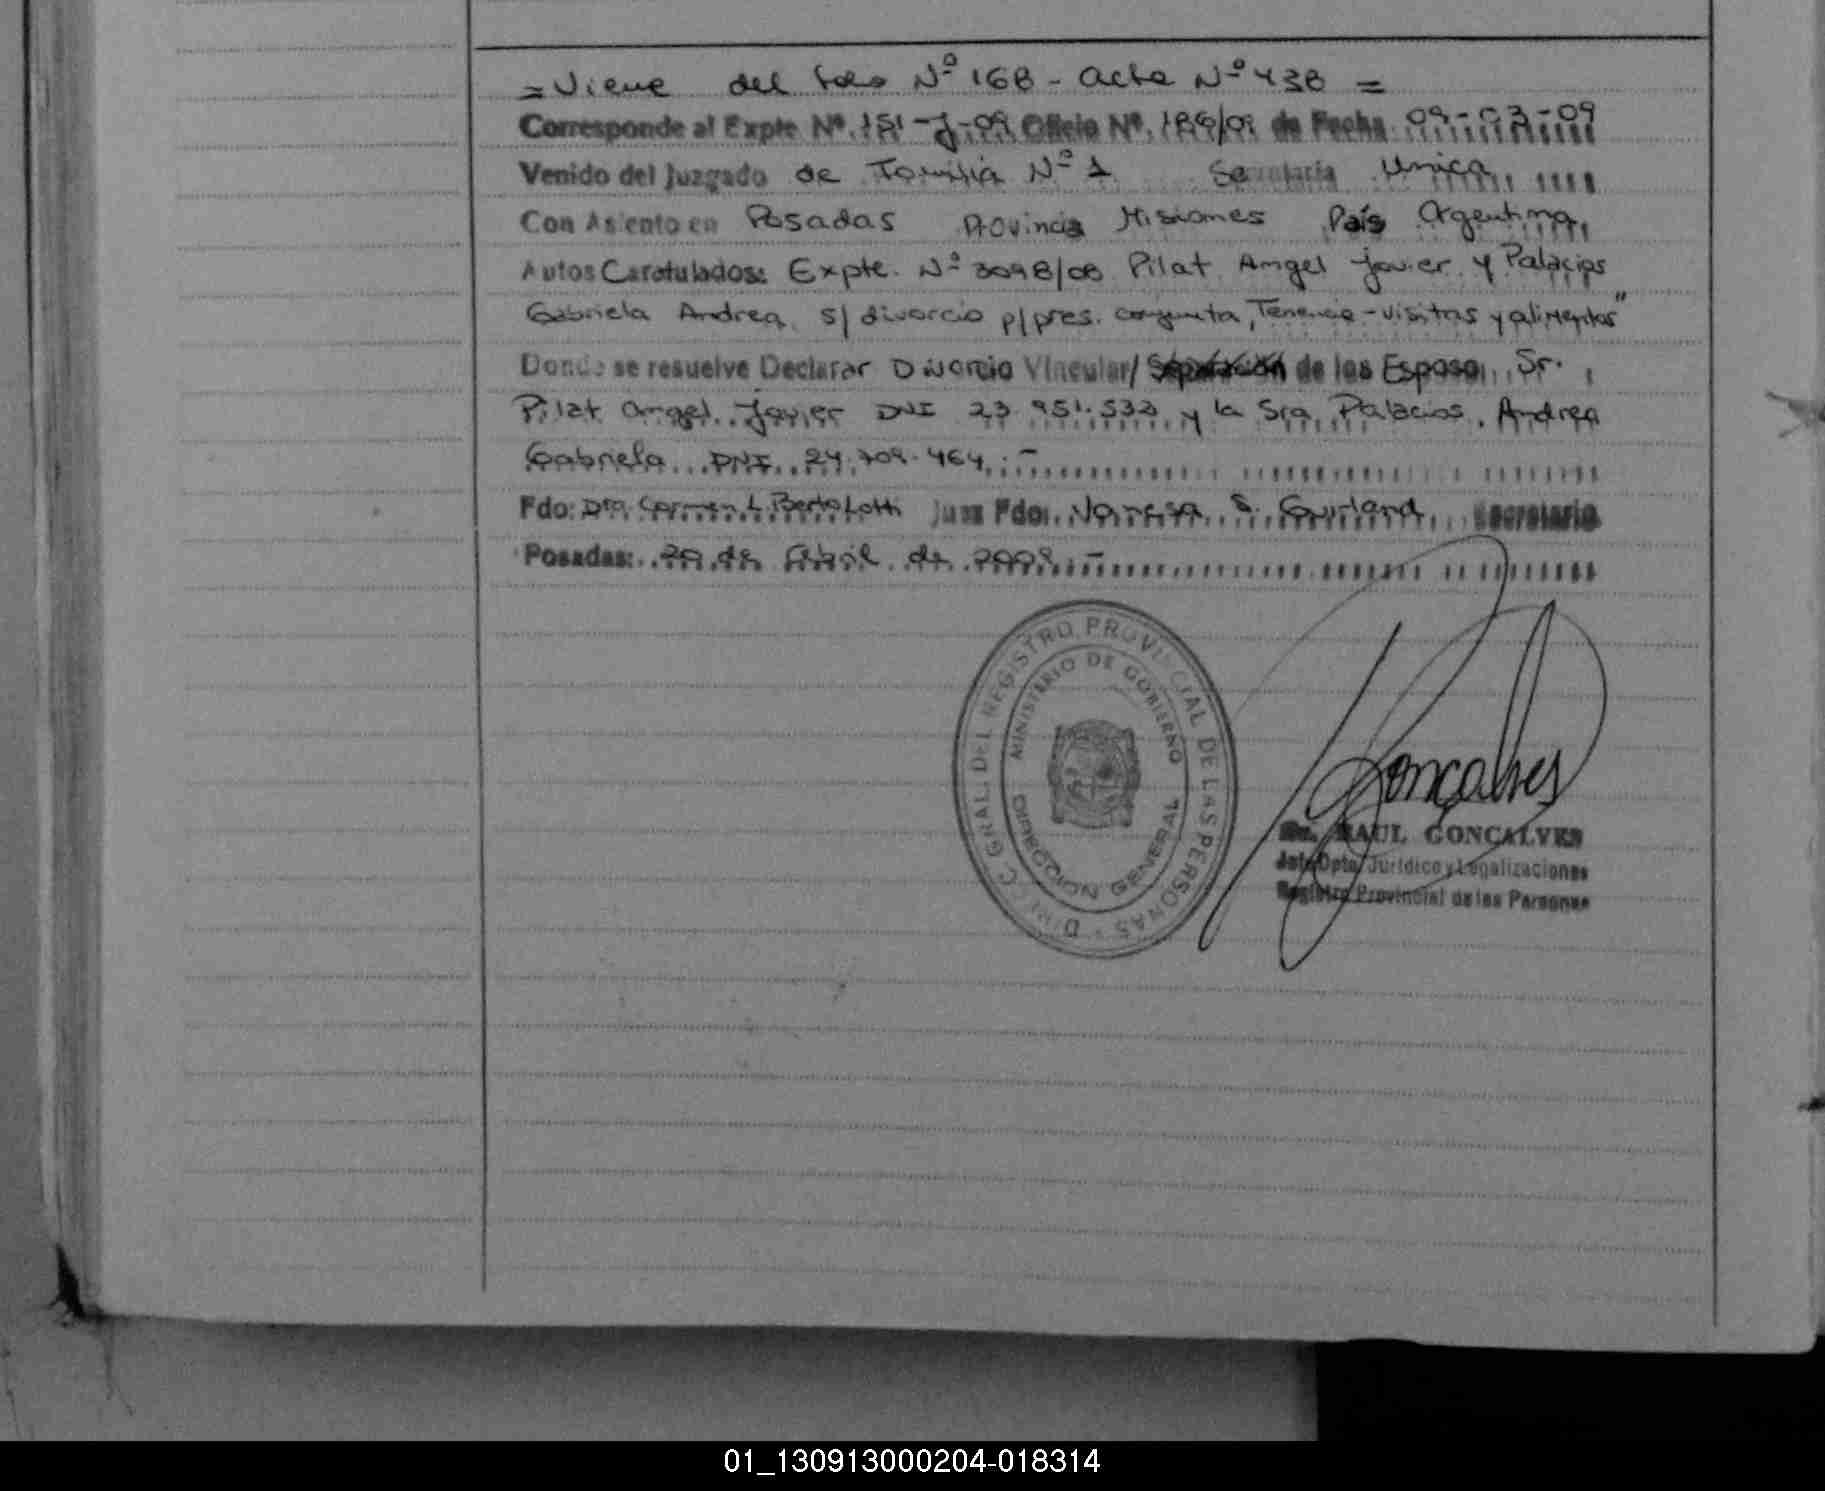 = Viene del folio Nº 168 - Acta Nº 438 =
Corresponde al Expte Nº. 151-J-09 Oficio Nº. 186/09 de Fecha 09-03-09
Venido del Juzgado de Familia Nº 1 Secretaria Unica
Con Asiento en Posadas Provincia Misiones País Argentina
Autos Caratulados: Expte. Nº 3098/08 Pilat Angel Javier y Palacios
Gabriela Andrea s/ divorcio p/pres. conjunta, Tenencia - visitas y alimentos"
Donde se resuelve Declarar Divorcio Vincular/ Separación de los Esposo Sr.
Pilat Angel Javier DNI 23.951.532 y la Sra. Palacios, Andrea
Gabriela DNI 24.709.464.-
Fdo: Dra. Carmen L. Bertolotti Juez Fdo: Vanesa S. Gurland Secretario
Posadas: 20 de Abril de 2009.-
DIREC. GRAL. DEL REGISTRO PROVINCIAL DE LAS PERSONAS
MINISTERIO DE GOBIERNO
DIRECCION GENERAL
Goncalves
Dr. RAUL GONCALVES
Jefe Dpto. Jurídico y Legalizaciones
Registro Provincial de las Personas
01_130913000204-018314